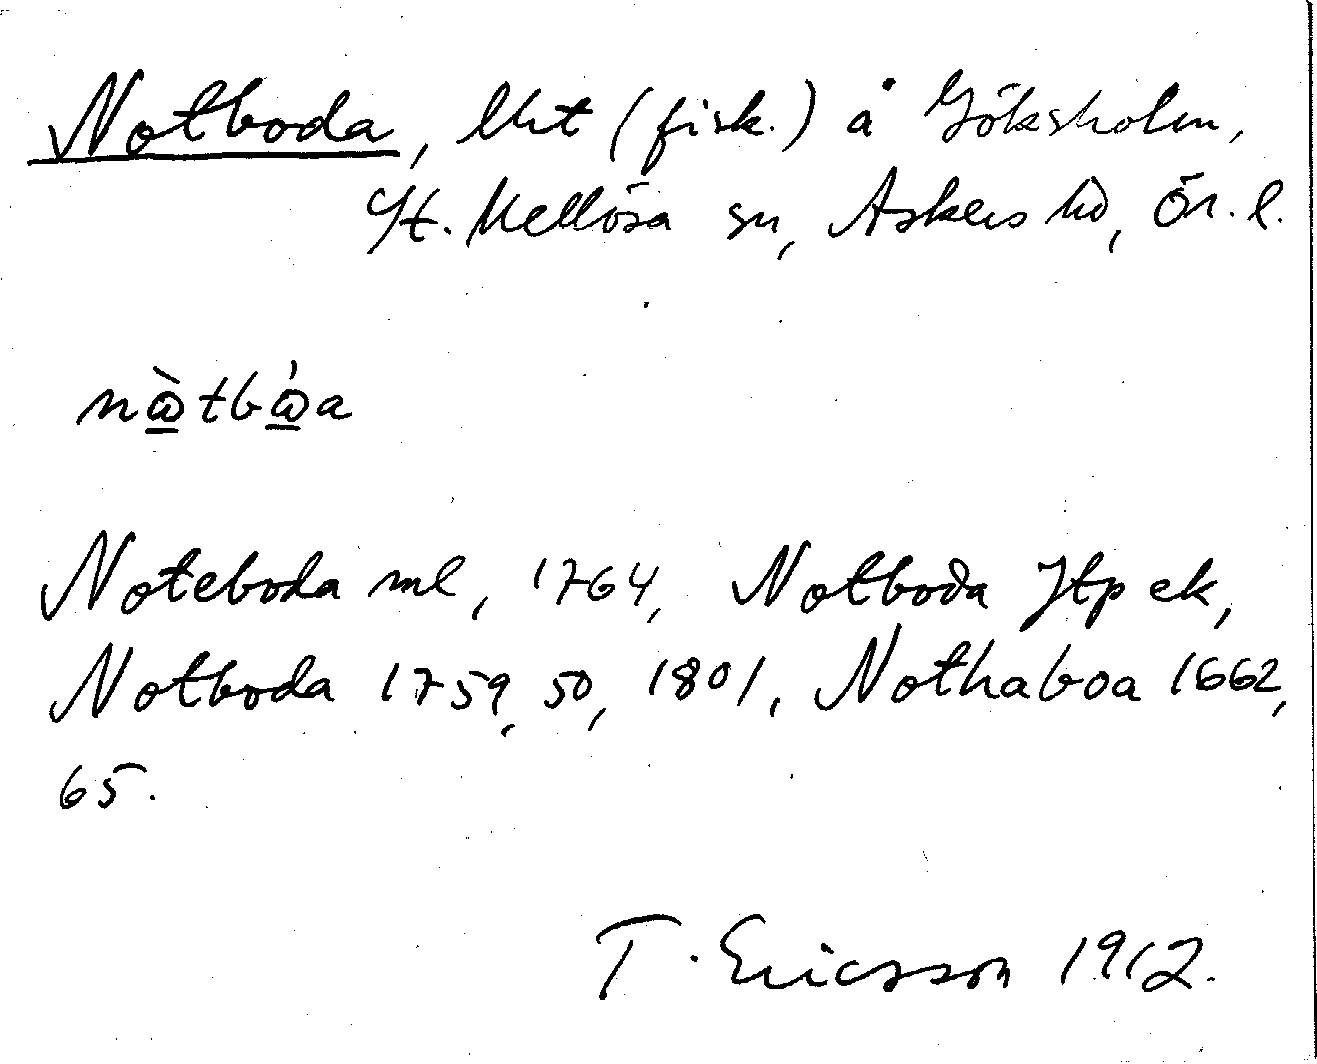 Notboda, lht (fisk.) å Göksholm,
St. Mellösa sn, Askers hd, Ör. l.
nàtbàa
Noteboda ml, 1764, Notboda Jtp ek,
Notboda 1759, 50, 1801, Nothaboa 1662,
65.
T. Ericsson 1912.